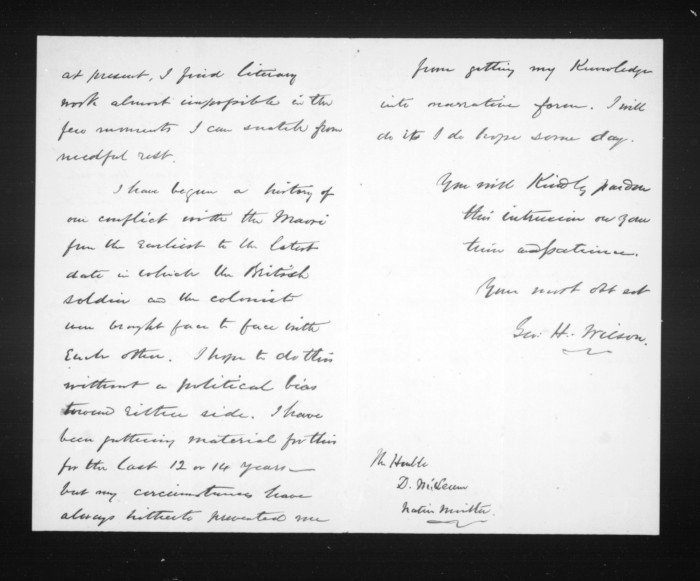 at present, I find literary
work almost impossible in the
few moments I can snatch from
needful rest.
I have begun a history of
our conflict with the Maori
from the Earliest to the latest
date in which the British
soldier and the colonist
were brought face to face with
Each other. I hope to do this
without a political bias
toward Either side. I have
been gathering material for this
for the last 12 or 14 years –
but my circumstances have
always hitherto prevented me
from getting my Knowledge
into narrative form. I will
do it I do hope some day.
You will Kindly pardon
this intrusion on your
time and patience.
Your most obt svt
Geo. H. Wilson.
The Honble
D. McLean
Native Minister.